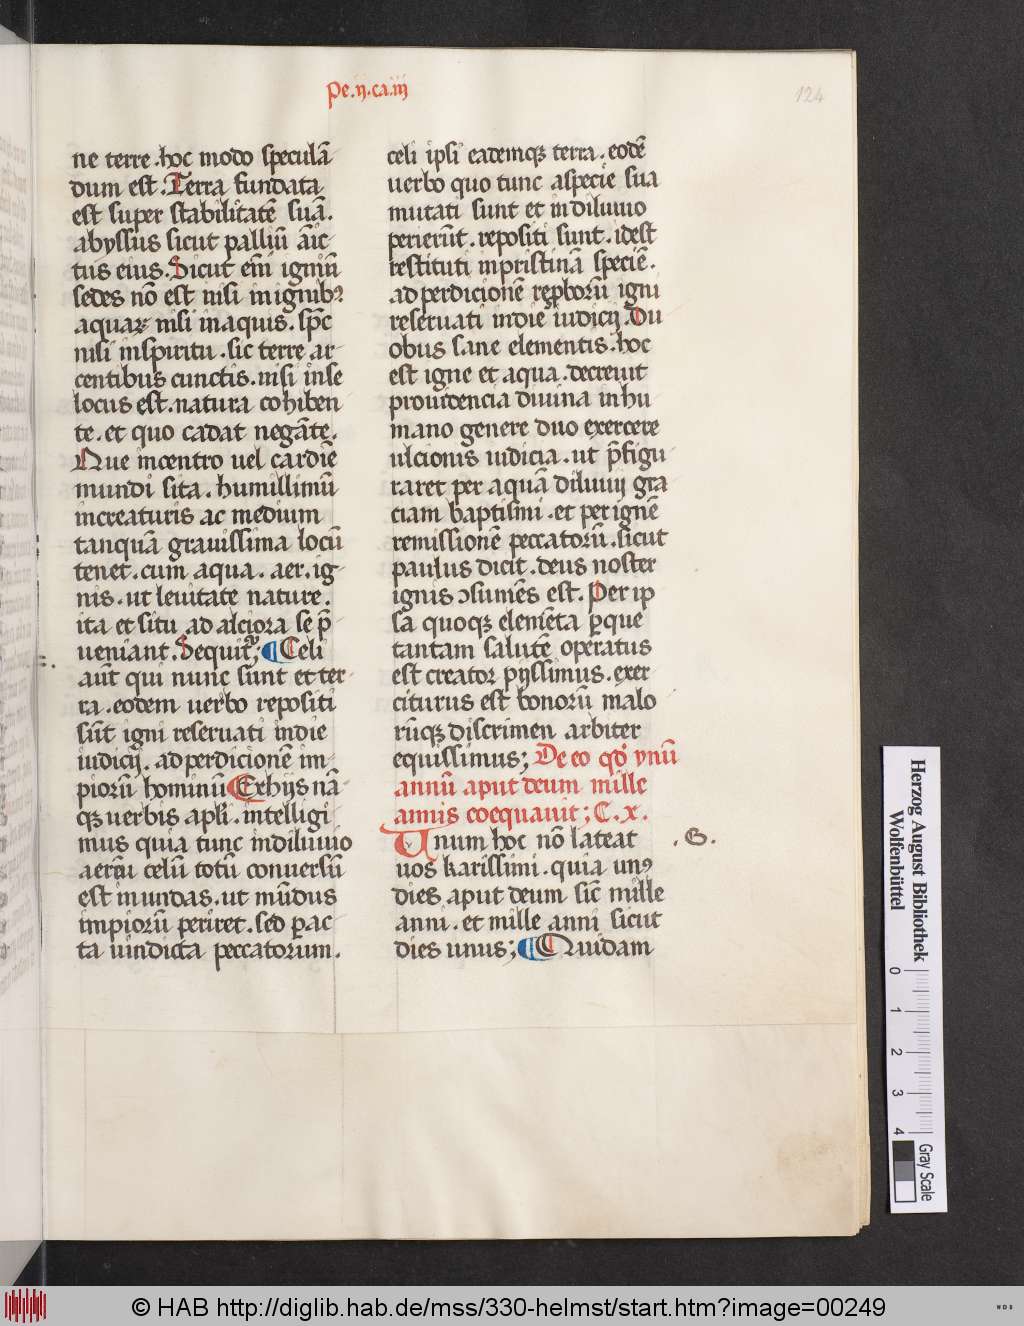 Pe.ij.ca.iij
124
ne terre.hoc modo speculā
dum est.Terra fundata
est super stabilitatē suā.
abyssus sicut palliū āic
tus eius.Sicut em̄ igniū
sedes nō est nisi in ignibꝰ
aquaꝝ nisi in aquis.sp̄c
nisi in spiritu.sic terre ar
centibus cunctis.nisi in se
locus est.natura cohiben
te.et quo cadat negāte.
Que in centro uel cardīe
mundi sita.humillimū
in creaturis ac medium
tanquā grauissima locū
tenet.cum aqua.aer.ig
nis.ut leuitate nature.
ita et situ ad alciora se p̄
ueniant.Sequit᷑; Celi
aūt qui nunc sunt et ter
ra.eodem uerbo repositi
sūt igni reseruati in die
iudicij.ad perdicionē im
piorū hominū Ex hijs nā
qꝫ uerbis apl̄i.intelligi
mus quia tunc in diluuio
aerēū celū totū conuersū
est in undas.ut mūdus
impiorū periret.sed ꝑac
ta uindicta peccatorum.
celi ipsi eademqꝫ terra.eodē
uerbo quo tunc a specie sua
mutati sunt et in diluuio
perierūt.repositi sunt.idest
restituti in pristinā speciē.
ad perdicionē reꝓborū igni
reseruati in die iudicij.Du
obus sane elementis.hoc
est igne et aqua.decreuit
prouidencia diuina in hu
mano genere duo exercere
ulcionis iudicia.ut p̄figu
raret per aquā diluuij gra
ciam baptismi.et per ignē
remissionē peccatorū.sicut
paulus dicit.deus noster
ignis ↄsumēs est.Per ip
sa quoqꝫ elemēta ꝑ que
tantam salutē operatus
est creator pijssimus.exer
citurus est bonorū malo
rūqꝫ discrimen arbiter
equissimus; De eo qd̓ vnū
annū aput deum mille
annis coequauit; C.x.
Unum hoc nō lateat
.G.
uos karissimi.quia unꝰ
dies aput deum sic̄ mille
anni.et mille anni sicut
dies unus; Quidam
Herzog August Bibliothek
Wolfenbüttel
0 1 2 3 4
Gray Scale
© HAB http://diglib.hab.de/mss/330-helmst/start.htm?image=00249